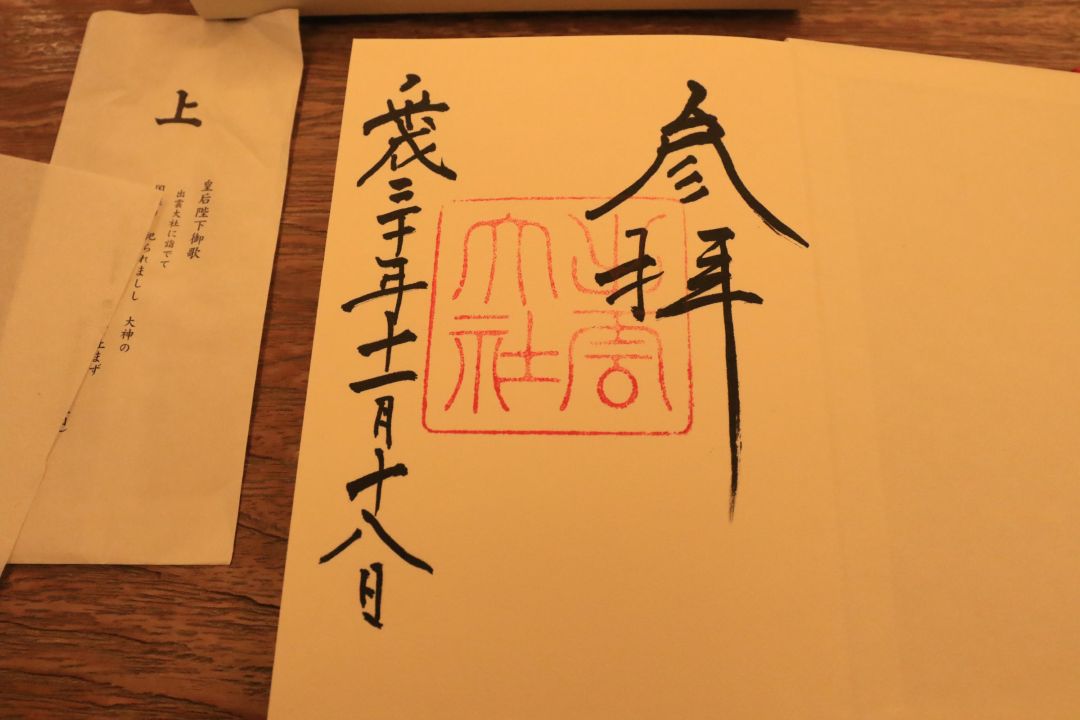 参拝
出雲
大社
平成三十年十一月十八日
上
皇后陛下御歌
出雲大社に詣でて
られましし 大神の
まず